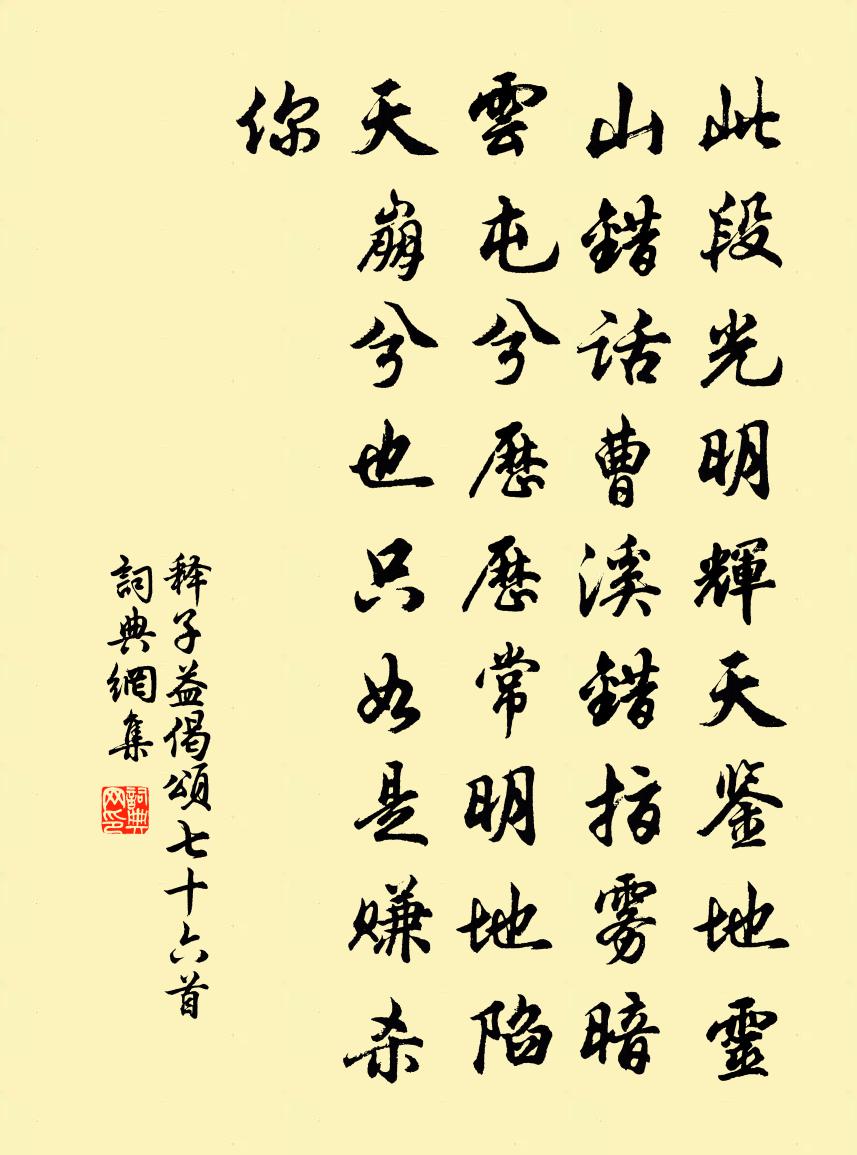 此段光明輝天鉴地靈
山錯话曹溪錯指雾暗
雲屯兮歷歷常明地陷
天崩兮也只如是赚杀
你
释子益偈頌七十六首
詞典網集
詞典网印